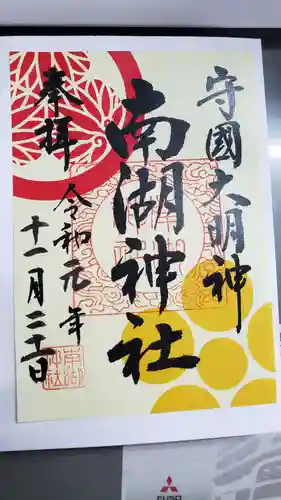 守國大明神
南湖神社
奉拝
令和元年
十一月二十二日
FUSO